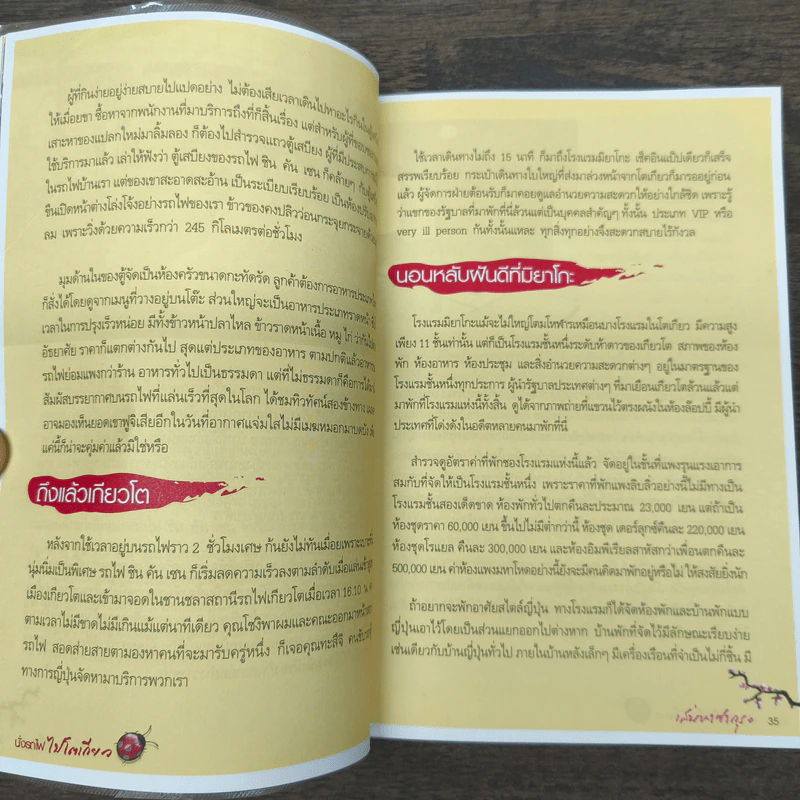 ผู้ที่กินง่ายอยู่ง่ายสบายไปแปดอย่าง ไม่ต้องเสียเวลาเดินไปหาอะไรกิน
ให้เมื่อยขา ซื้อหาจากพนักงานที่มาบริการถึงที่ก็สิ้นเรื่อง แต่สำหรับผู้ที่ชอบ
เสาะหาของแปลกใหม่มาลิ้มลอง ก็ต้องไปสำรวจแถวตู้เสบียง ผู้ที่มีประสบการณ์
ใช้บริการมาแล้ว เล่าให้ฟังว่า ตู้เสบียงของรถไฟ ชิน คัน เซน ก็คล้ายๆ กับตู้
ในรถไฟบ้านเรา แต่ของเขาสะอาดสะอ้าน เป็นระเบียบเรียบร้อย เป็นห้องปรับ
ขืนเปิดหน้าต่างโล่งโจ้งอย่างรถไฟของเรา ข้าวของคงปลิวว่อนกระจุยกระจาย
ลม เพราะวิ่งด้วยความเร็วกว่า 245 กิโลเมตรต่อชั่วโมง
มุมด้านในของตู้จัดเป็นห้องครัวขนาดกะทัดรัด ลูกค้าต้องการอาหารประเภท
ก็สั่งได้โดยดูจากเมนูที่วางอยู่บนโต๊ะ ส่วนใหญ่จะเป็นอาหารประเภทราดหน้า
เวลาในการปรุงเร็วหน่อย มีทั้งข้าวหน้าปลาไหล ข้าวราดหน้าเนื้อ หมู ไก่ ว่ากันไป
อัธยาศัย ราคาก็แตกต่างกันไป สุดแต่ประเภทของอาหาร ตามปกติแล้วอาหาร
รถไฟย่อมแพงกว่าร้าน อาหารทั่วไปเป็นธรรมดา แต่ที่ไม่ธรรมดาก็คือการได้
สัมผัสบรรยากาศบนรถไฟที่แล่นเร็วที่สุดในโลก ได้ชมทิวทัศน์สองข้างทาง
อาจมองเห็นยอดเขาฟูจิเสียอีกในวันที่อากาศแจ่มใสไม่มีเมฆหมอกมาบดบัง
แค่นี้ก็น่าจะคุ้มค่าแล้วมิใช่หรือ
ถึงแล้วเกียวโต
หลังจากใช้เวลาอยู่บนรถไฟราว 2 ชั่วโมงเศษ ก้นยังไม่ทันเมื่อยเพราะ
นุ่มนิ่มเป็นพิเศษ รถไฟ ชิน คัน เซน ก็เริ่มลดความเร็วลงตามลำดับเมื่อแล่นเข้า
เมืองเกียวโตและเข้ามาจอดในชานชลาสถานีรถไฟเกียวโตเมื่อเวลา 16.10 น.
ตามเวลาไม่มีขาดไม่มีเกินแม้แต่นาทีเดียว คุณโซงิพาผมและคณะออกมา
รถไฟ สอดส่ายสายตามองหาคนที่จะมารับครู่หนึ่ง ก็เจอคุณทะสึจิ คนขับ
ทางการญี่ปุ่นจัดหามาบริการพวกเรา
นั่งรถไฟ ไปโตเกียว
ใช้เวลาเดินทางไม่ถึง 15 นาที ก็มาถึงโรงแรมมิยาโกะ เช็คอินแป๊ปเดียวก็เสร็จ
สรรพเรียบร้อย กระเป๋าเดินทางใบใหญ่ที่ส่งมาล่วงหน้าจากโตเกียวก็มารออยู่ก่อน
แล้ว ผู้จัดการฝ่ายต้อนรับก็มาคอยดูแลอำนวยความสะดวกให้อย่างใกล้ชิด เพราะรู้
ว่าแขกของรัฐบาลที่มาพักที่นี่ล้วนแต่เป็นบุคคลสำคัญๆ ทั้งนั้น ประเภท VIP หรือ
very ill person กันทั้งนั้นแหละ ทุกสิ่งทุกอย่างจึงสะดวกสบายไร้กังวล
นอนหลับฝันดีที่มิยาโกะ
โรงแรมมิยาโกะแม้จะไม่ใหญ่โตมโหฬารเหมือนบางโรงแรมในโตเกียว มีความสูง
เพียง 11 ชั้นเท่านั้น แต่ก็เป็นโรงแรมชั้นหนึ่งระดับห้าดาวของเกียวโต สภาพของห้อง
พัก ห้องอาหาร ห้องประชุม และสิ่งอำนวยความสะดวกต่างๆ อยู่ในมาตรฐานของ
โรงแรมชั้นหนึ่งทุกประการ ผู้นำรัฐบาลประเทศต่างๆ ที่มาเยือนเกียวโตล้วนแล้วแต่
มาพักที่โรงแรมแห่งนี้ทั้งสิ้น ดูได้จากภาพถ่ายที่แขวนไว้ตรงผนังในห้องล๊อปปี้ มีผู้นำ
ประเทศที่โด่งดังในอดีตหลายคนมาพักที่นี่
สำรวจดูอัตราค่าที่พักของโรงแรมแห่งนี้แล้ว จัดอยู่ในขั้นที่แพงรุนแรงเอาการ
สมกับที่จัดให้เป็นโรงแรมชั้นหนึ่ง เพราะราคาที่พักแพงลิบลิ่วอย่างนี้ไม่มีทางเป็น
โรงแรมชั้นสองเด็ดขาด ห้องพักทั่วไปตกคืนละประมาณ 23,000 เยน แต่ถ้าเป็น
ห้องชุดราคา 60,000 เยน ขึ้นไปไม่มีต่ำกว่านี้ ห้องชุด เดอร์ลุกซ์คืนละ 220,000 เยน
ห้องชุดโรแยล คืนละ 300,000 เยน และห้องอิมพีเรียลสาหัสกว่าเพื่อนตกคืนละ
500,000 เยน ค่าห้องแพงมหาโหดอย่างนี้ยังจะมีคนคิดมาพักอยู่หรือไม่ ให้สงสัยยิ่งนัก
ถ้าอยากจะพักอาศัยสไตล์ญี่ปุ่น ทางโรงแรมก็ได้จัดห้องพักและบ้านพักแบบ
ญี่ปุ่นเอาไว้โดยเป็นส่วนแยกออกไปต่างหาก บ้านพักที่จัดไว้มีลักษณะเรียบง่าย
เช่นเดียวกับบ้านญี่ปุ่นทั่วไป ภายในบ้านหลังเล็กๆ มีเครื่องเรือนที่จำเป็นไม่กี่ชิ้น มี
35